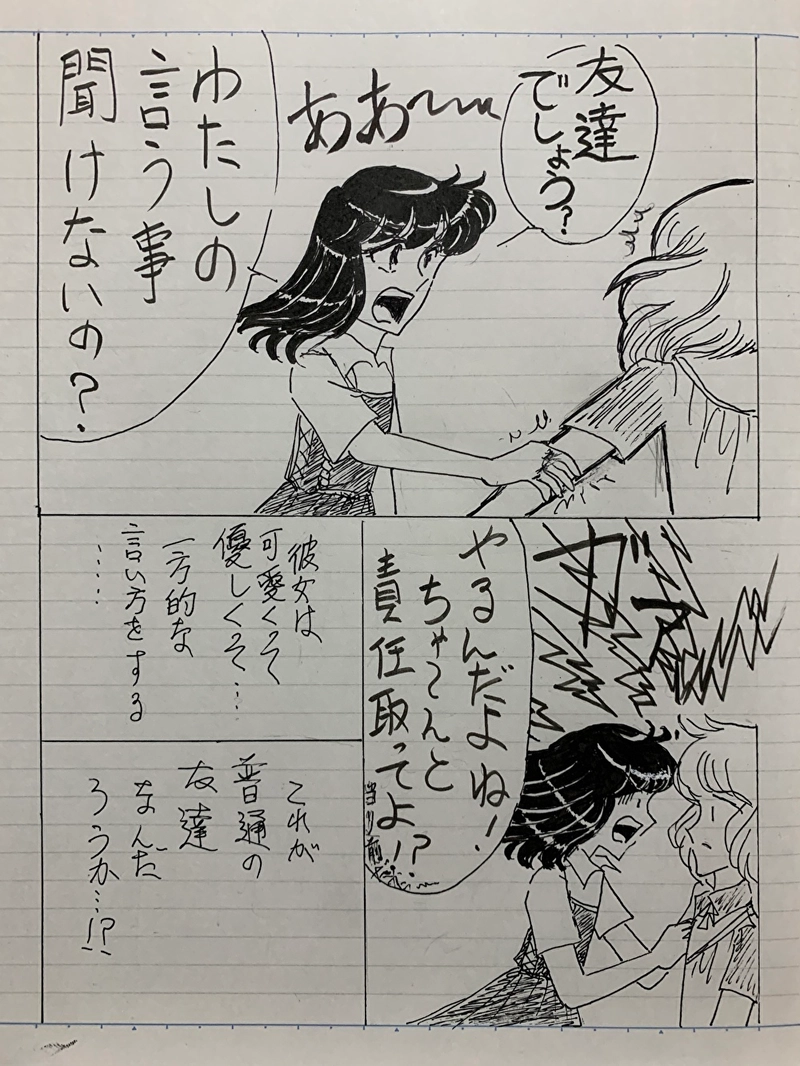 友達
でしょう?
ああ〜
わたしの
言う事
聞けないの?
ガーン
やるんだよね!
ちゃ〜んと
責任取ってよ!?
彼女は
可愛くって
優しくって…
一方的な
言い方をする
……
これが
普通の
友達
なんだ
ろうか…!?